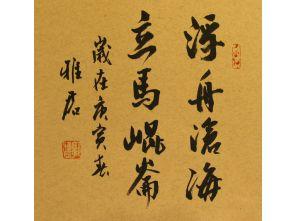 浮舟滄海
立馬崐崙
歲在庚寅春
雅君